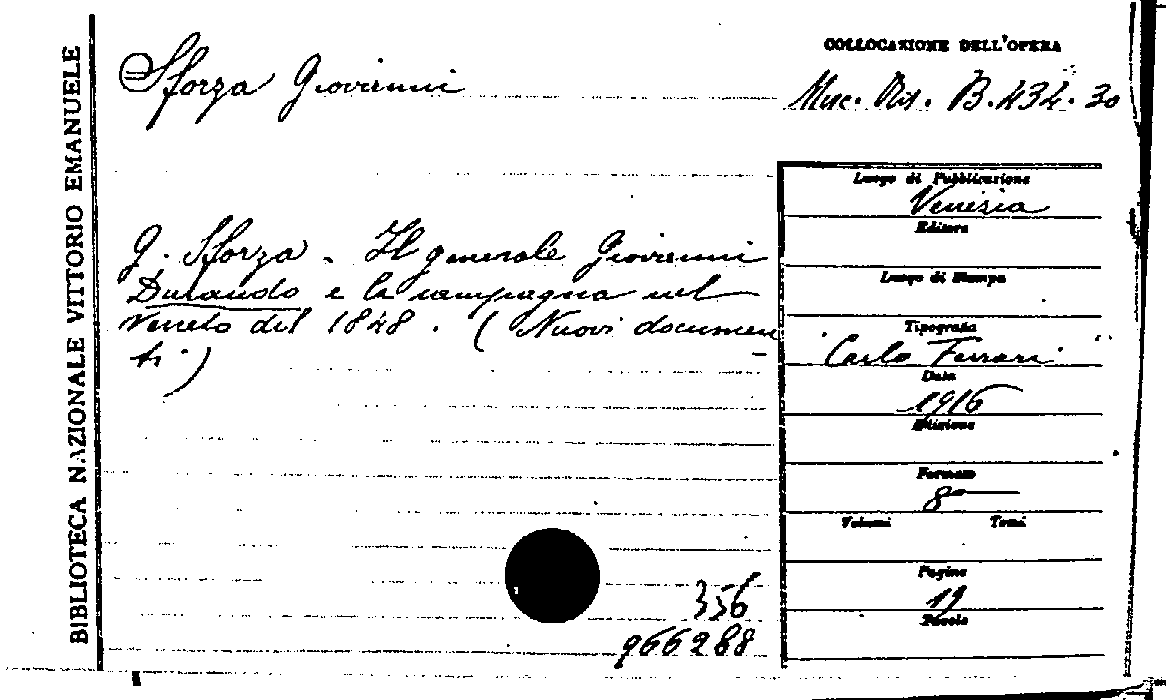 BIBLIOTECA NAZIONALE VITTORIO EMANUELE
Sforza Giovanni
COLLOCAZIONE DELL'OPERA
Mus. Ris. B. 434. 30
G. Sforza - Il generale Giovanni
Durando e la campagna nel
Veneto del 1848. (Nuovi documen
ti.)
Luogo di Pubblicazione
Venezia
Editore
Luogo di Stampa
Tipografia
Carlo Ferrari
Data
1916
Edizione
Formato
8°
Volumi Tomi
Pagine
19
Tavole
356
966288